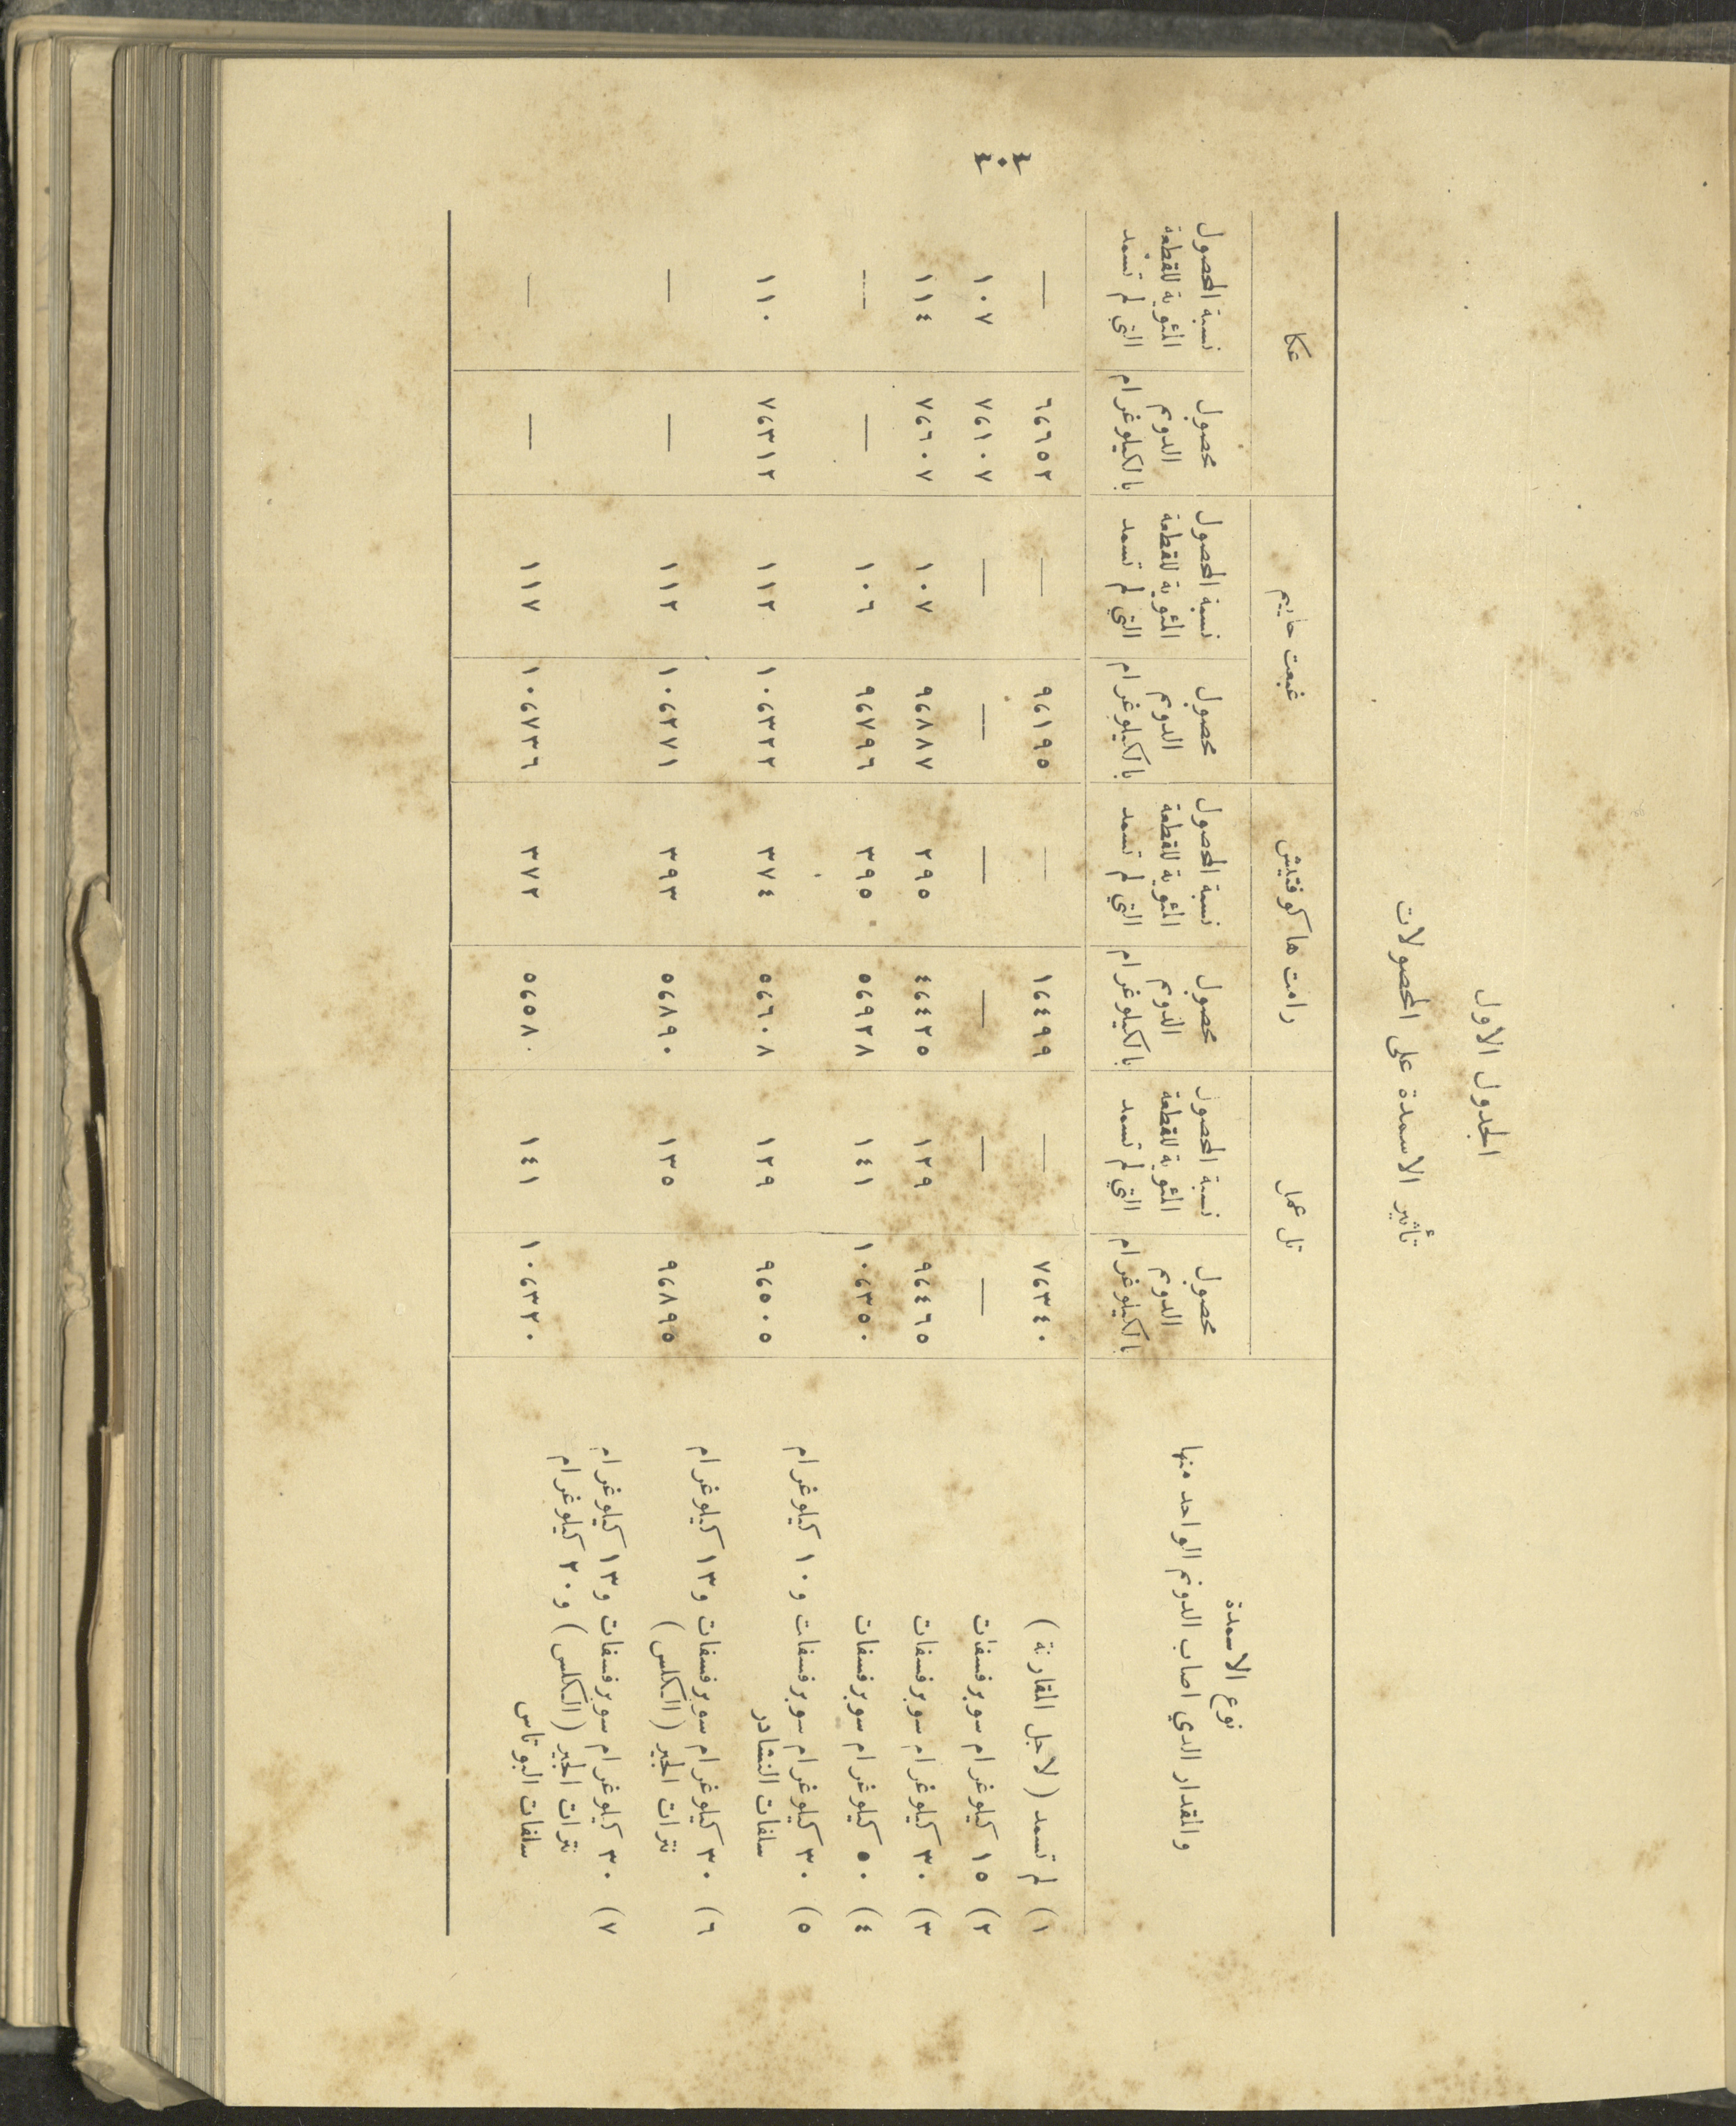 ٤٠٤
الجدول الاول
تأثير الاسمدة على المحصولات
نوع الاسمدة
والمقدار الذي اصاب الدونم الواحد منها
تل عمل
رامت هاكوفتيش
غبعت حاييم
عكا
محصول الدونم بالكيلوغرام
نسبة المحصول المئوية للقطعة التي لم تسمد
محصول الدونم بالكيلوغرام
نسبة المحصول المئوية للقطعة التي لم تسمد
محصول الدونم بالكيلوغرام
نسبة المحصول المئوية للقطعة التي لم تسمد
محصول الدونم بالكيلوغرام
نسبة المحصول المئوية للقطعة التي لم تسمد
١) لم تسمد (لاجل المقارنة) ٧،٣٤٠ — ١،٤٩٩ — ٩،١٩٥ — ٦،٦٥٢ —
٢) ١٥ كيلوغرام سوبرفسفات — — — — — — ٧،١٠٧ ١٠٧
٣) ٣٠ كيلوغرام سوبرفسفات ٩،٤٦٥ ١٢٩ ٤،٤٢٥ ٢٩٥ ٩،٨٨٧ ١٠٧ ٧،٦٠٧ ١١٤
٤) ٥٠ كيلوغرام سوبرفسفات ١٠،٣٥٠ ١٤١ ٥،٩٢٨ ٣٩٥ ٩،٧٩٦ ١٠٦ — —
٥) ٣٠ كيلوغرام سوبرفسفات و١٠ كيلوغرام
سلفات النشادر ٩،٥٠٥ ١٢٩ ٥،٦٠٨ ٣٧٤ ١٠،٣٢٢ ١١٢ ٧،٣١٢ ١١٠
٦) ٣٠ كيلوغرام سوبرفسفات و١٣ كيلوغرام
نترات الجير (الكلس) ٩،٨٩٥ ١٣٥ ٥،٨٩٠ ٣٩٣ ١٠،٢٧١ ١١٢ — —
٧) ٣٠ كيلوغرام سوبرفسفات و١٣ كيلوغرام
نترات الجير (الكلس) و٢٠ كيلوغرام
سلفات البوتاس ١٠،٣٢٠ ١٤١ ٥،٥٨٠ ٣٧٢ ١٠،٧٣٦ ١١٧ — —